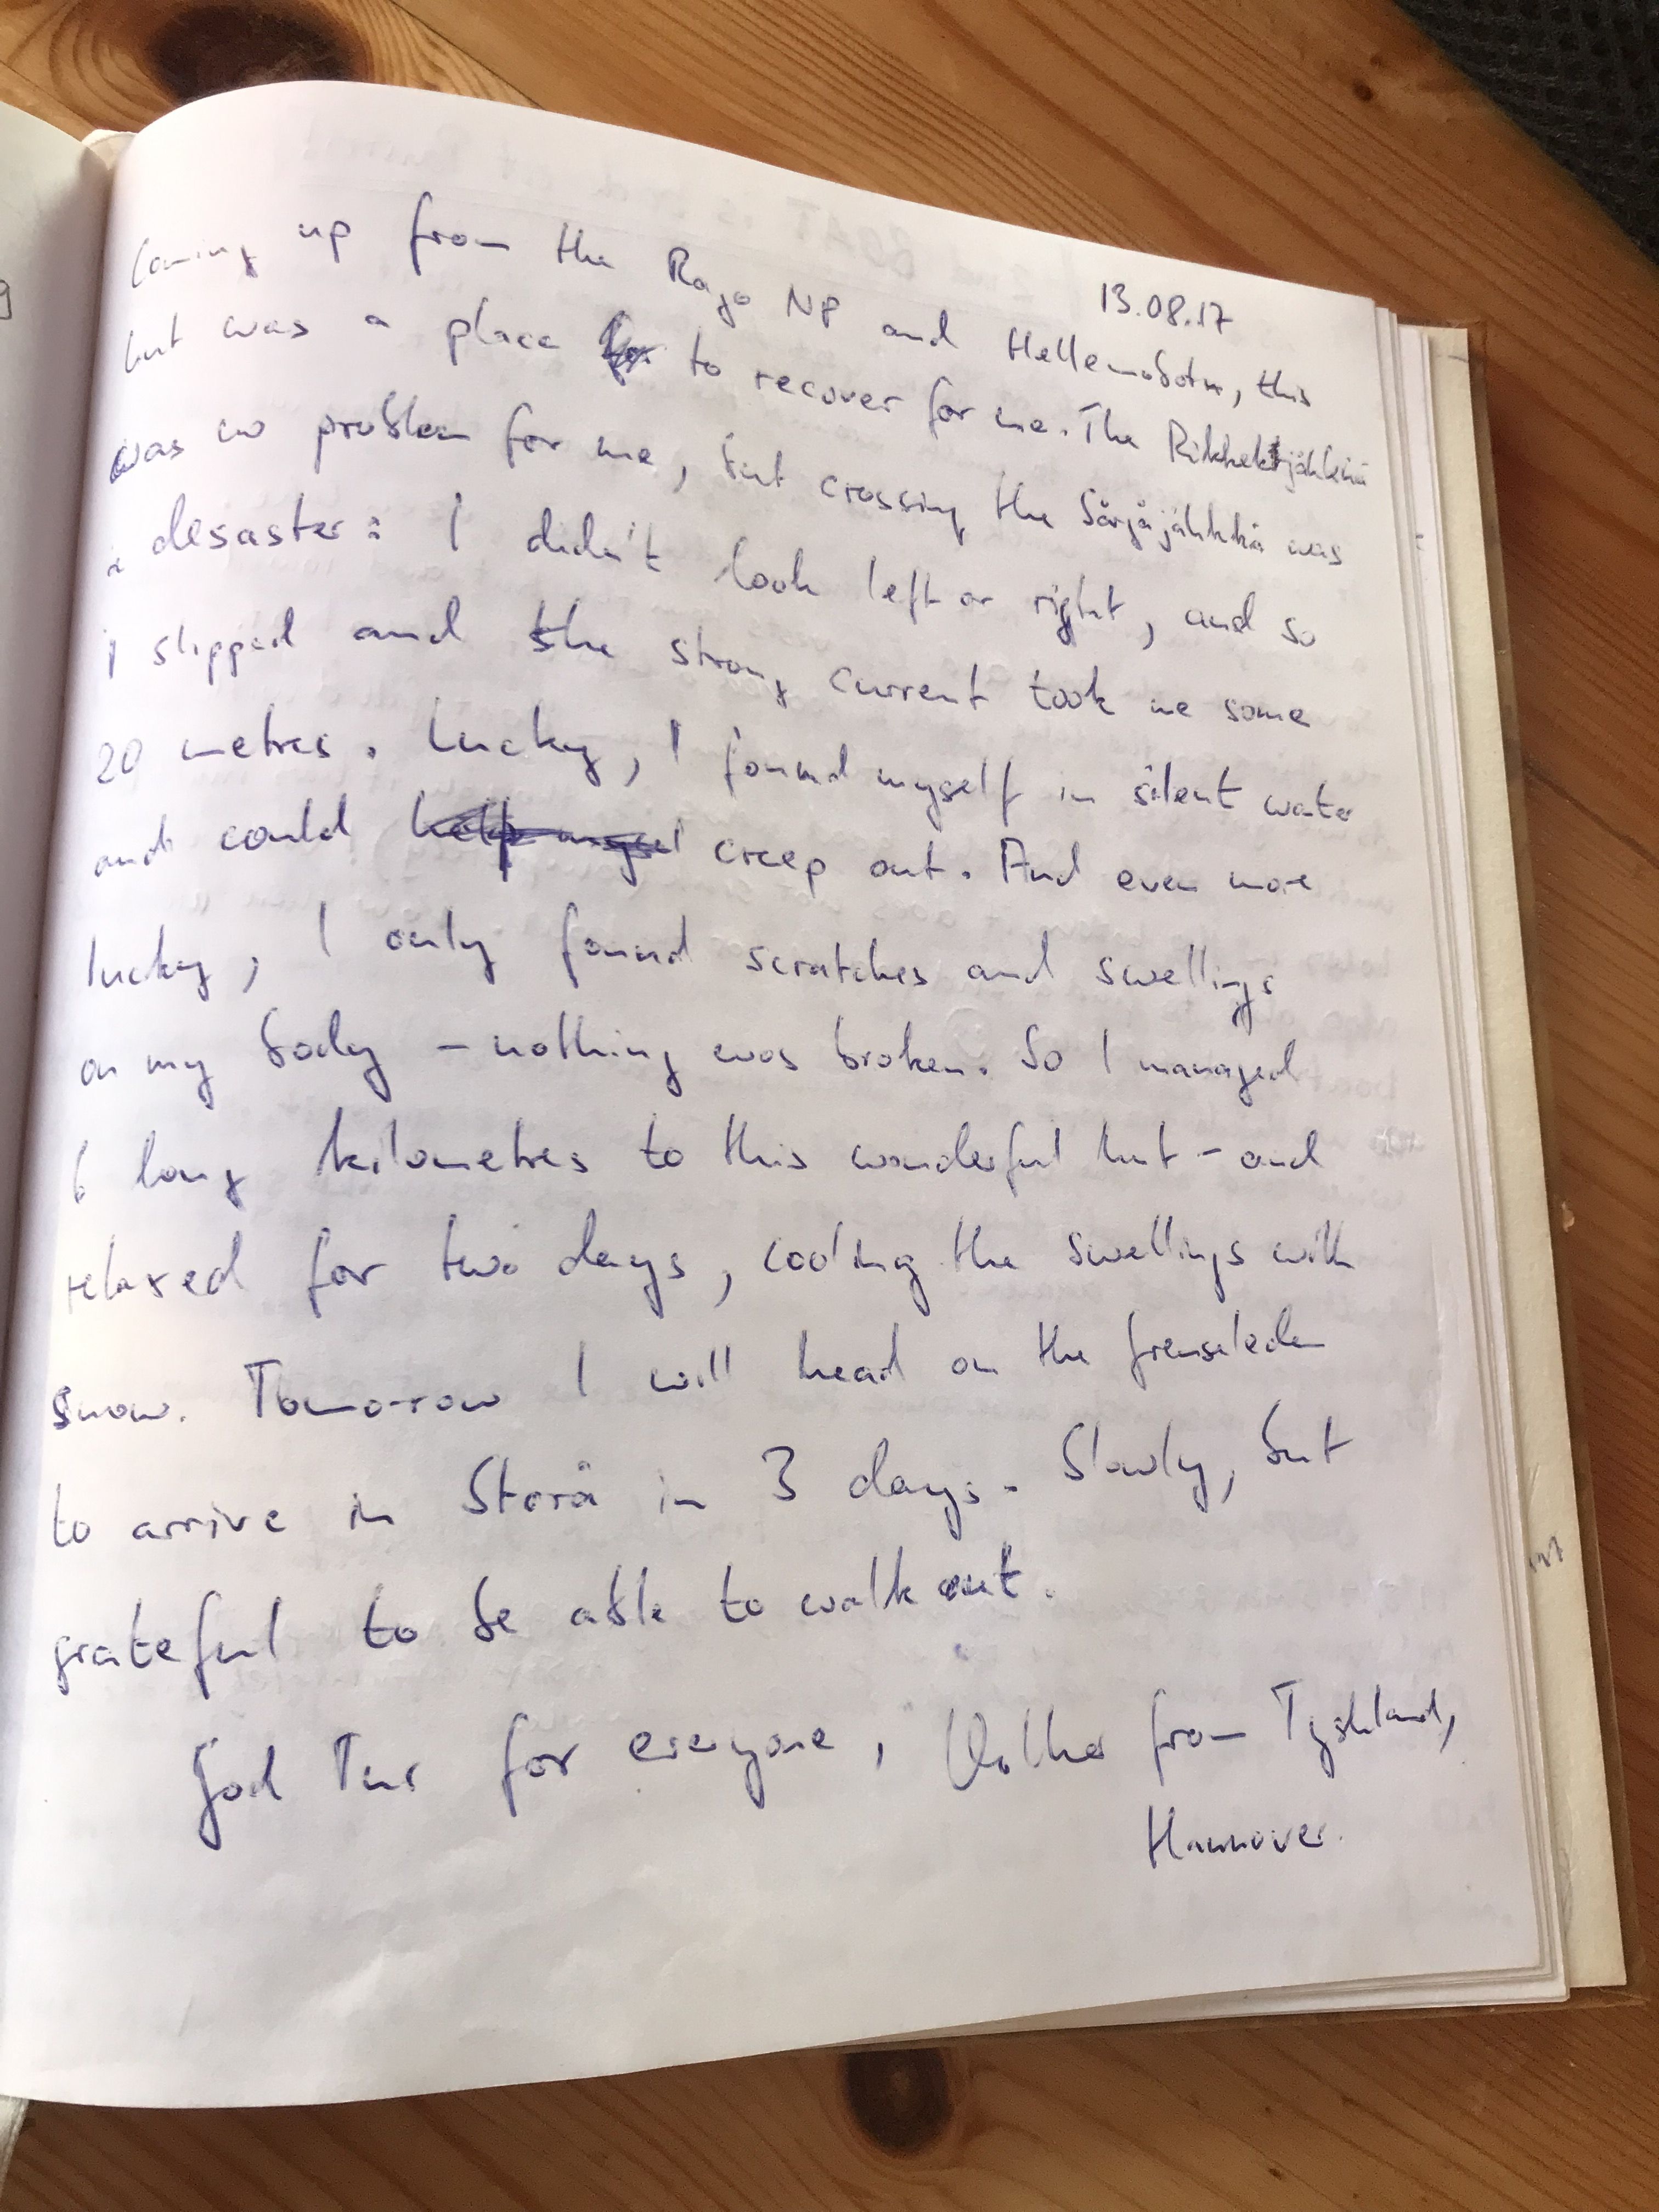 13.08.17
Coming up from the Rago NP and Hellemobotn, this
hut was a place to recover for me. The
was no problem for me, but crossing the Sårjåjåhkkå was
a desaster: I didn't look left or right, and so
I slipped and the strong current took me some
20 metres. Lucky, I found myself in silent water
and could creep out. And even more
lucky, I only found scratches and swellings
on my body – nothing was broken. So I managed
6 long kilometres to this wonderful hut – and
relaxed for two days, cooling the swellings with
snow. Tomorrow I will head on the Grensleden
to arrive in Storå in 3 days. Slowly, but
grateful to be able to walk out.
God Tur for everyone, Volker from Tyskland,
Hannover.